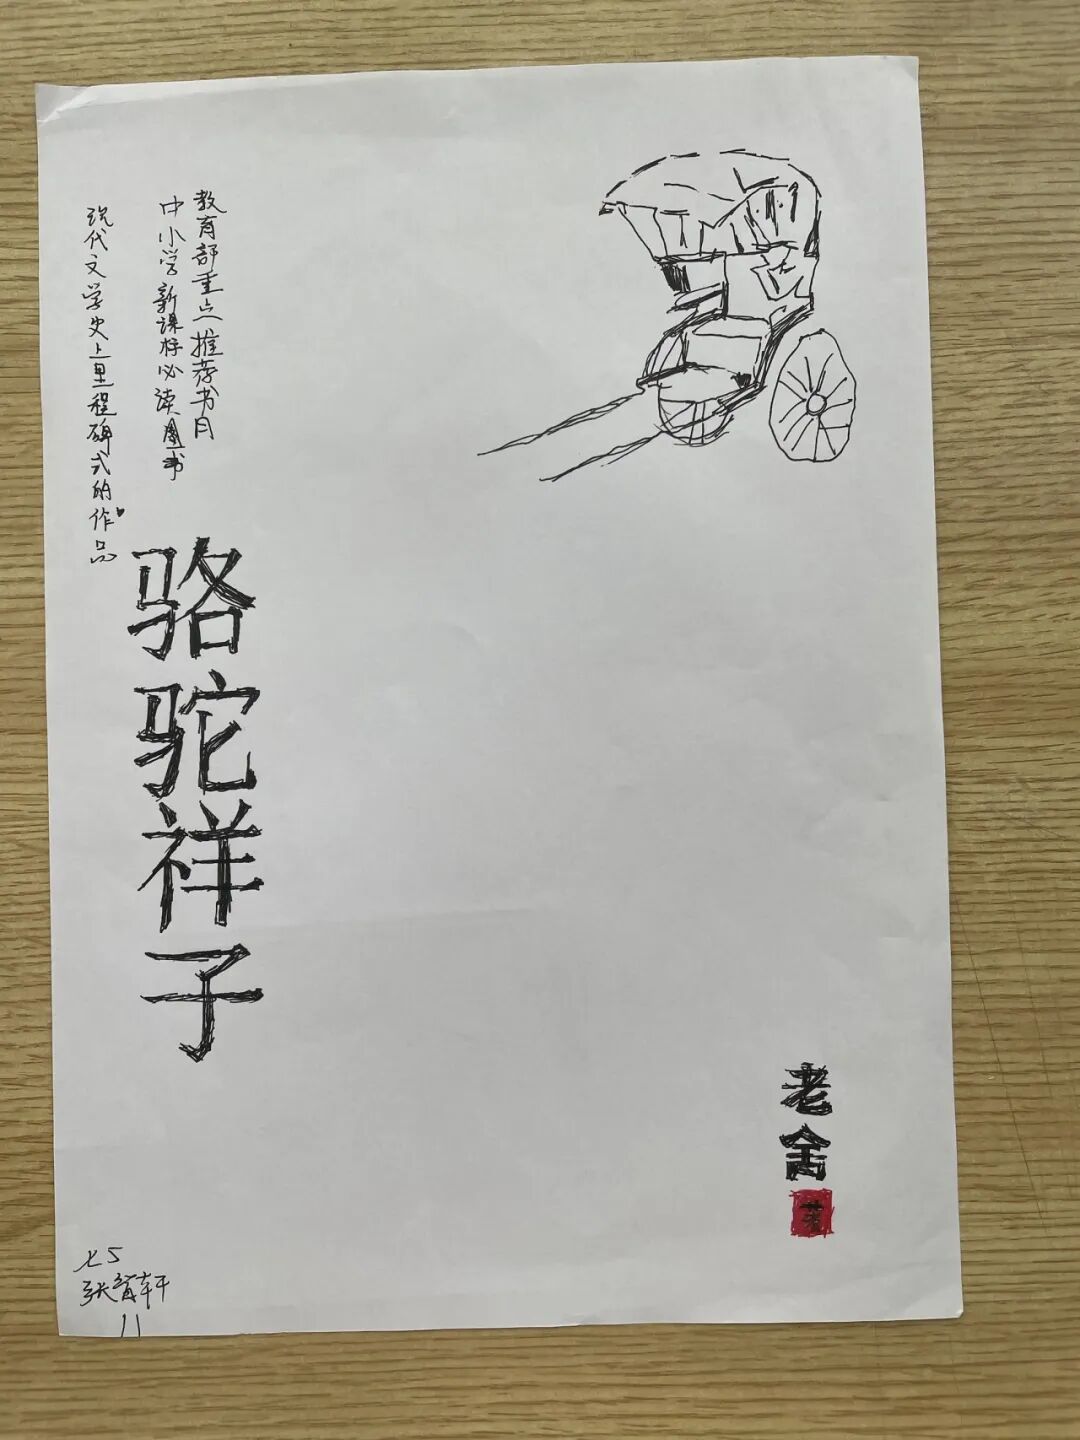 教育部重点推荐书目
中小学新课标必读图书
现代文学史上里程碑式的作品
骆驼祥子
老舍
著
七5
11